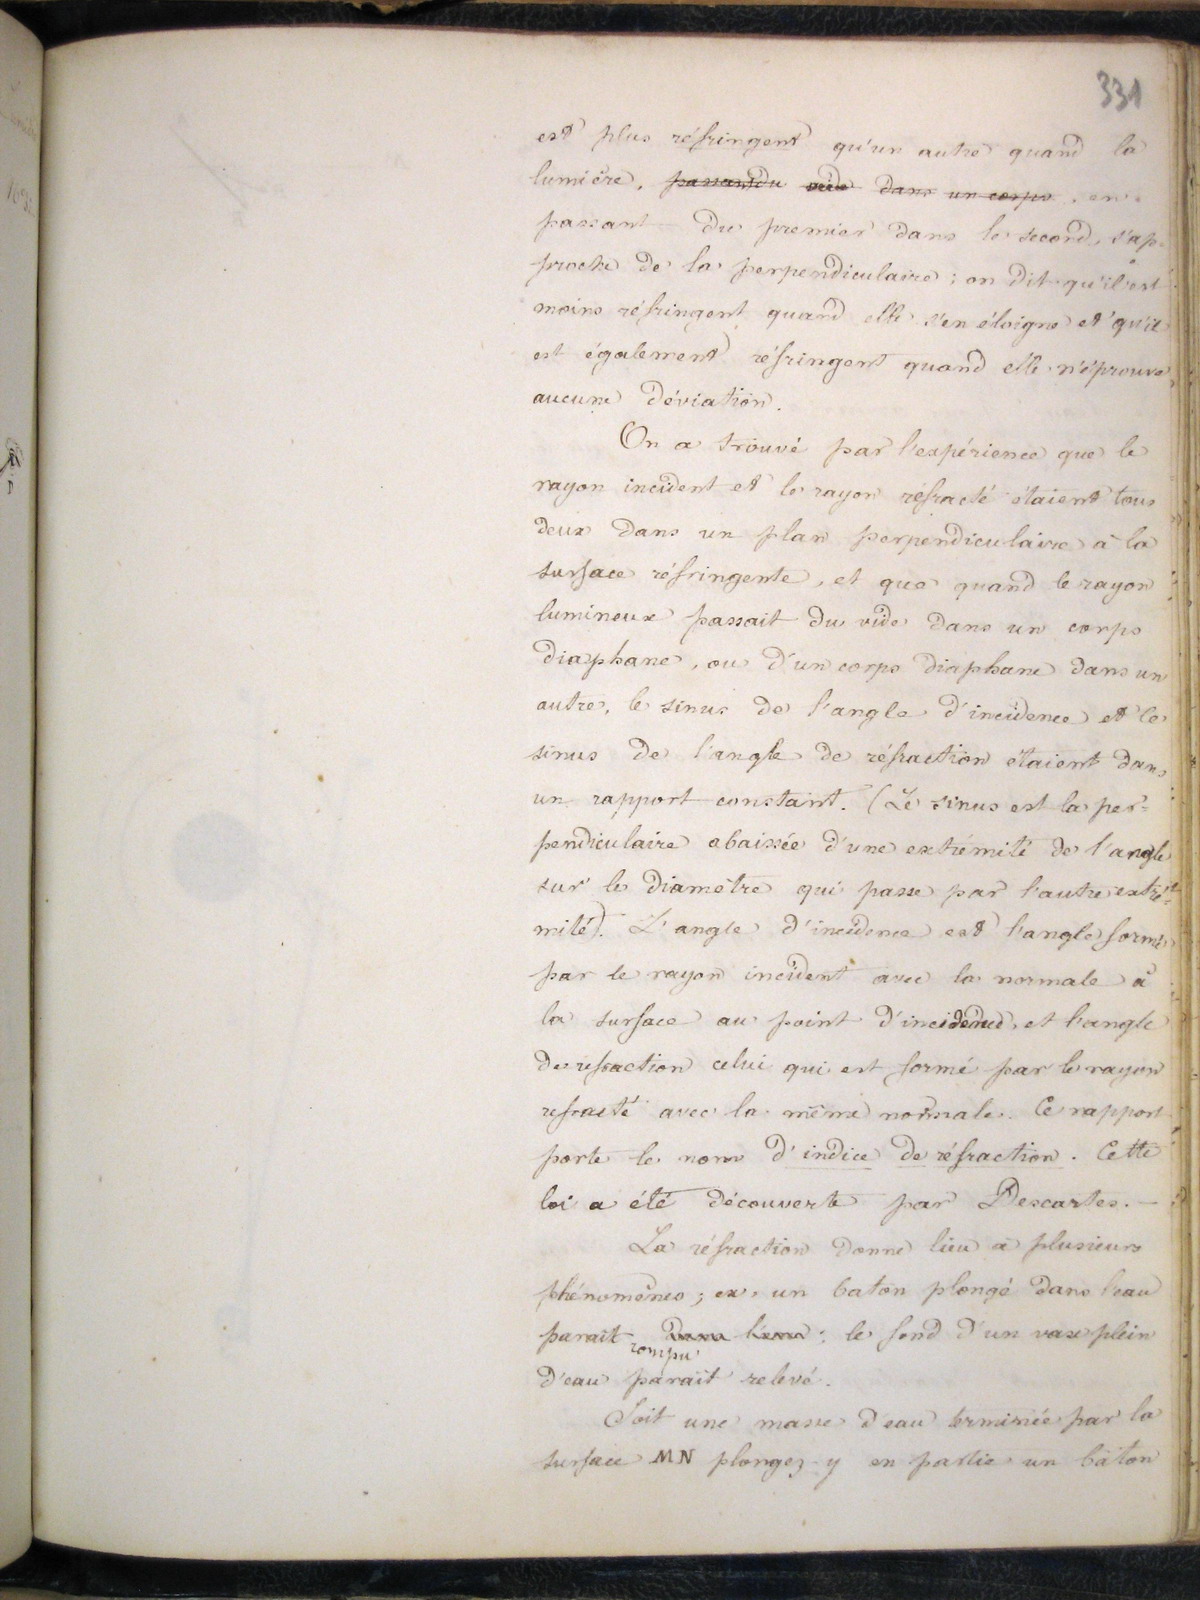 331
est plus réfringent qu'un autre quand la
lumière, passant du vide dans un corps, en
passant du premier dans le second, s'ap-
proche de la perpendiculaire ; on dit qu'il est
moins réfringent quand elle s'en éloigne et qu'il
est également réfringent quand elle n'éprouve
aucune déviation.
On a trouvé par l'expérience que le
rayon incident et le rayon réfracté étaient tous
deux dans un plan perpendiculaire à la
surface réfringente, et que quand le rayon
lumineux passait du vide dans un corps
diaphane, ou d'un corps diaphane dans un
autre, le sinus de l'angle d'incidence et le
sinus de l'angle de réfraction étaient dans
un rapport constant. (Le sinus est la per=
pendiculaire abaissée d'une extrémité de l'angle
sur le diamètre qui passe par l'autre extré=
mité). L'angle d'incidence est l'angle formé
par le rayon incident avec la normale à
la surface au point d'incidence, et l'angle
de refraction celui qui est formé par le rayon
refracté avec la même normale. Ce rapport
porte le nom d'indice de réfraction. Cette
loi a été découverte par Descartes. —
La réfraction donne lieu à plusieurs
phénomènes ; ex. un baton plongé dans l'eau
parait dans l'eau : le fond d'un vase plein
rompu
d'eau parait relevé.
Soit une masse d'eau terminée par la
surface MN plongez-y en partie un bâton